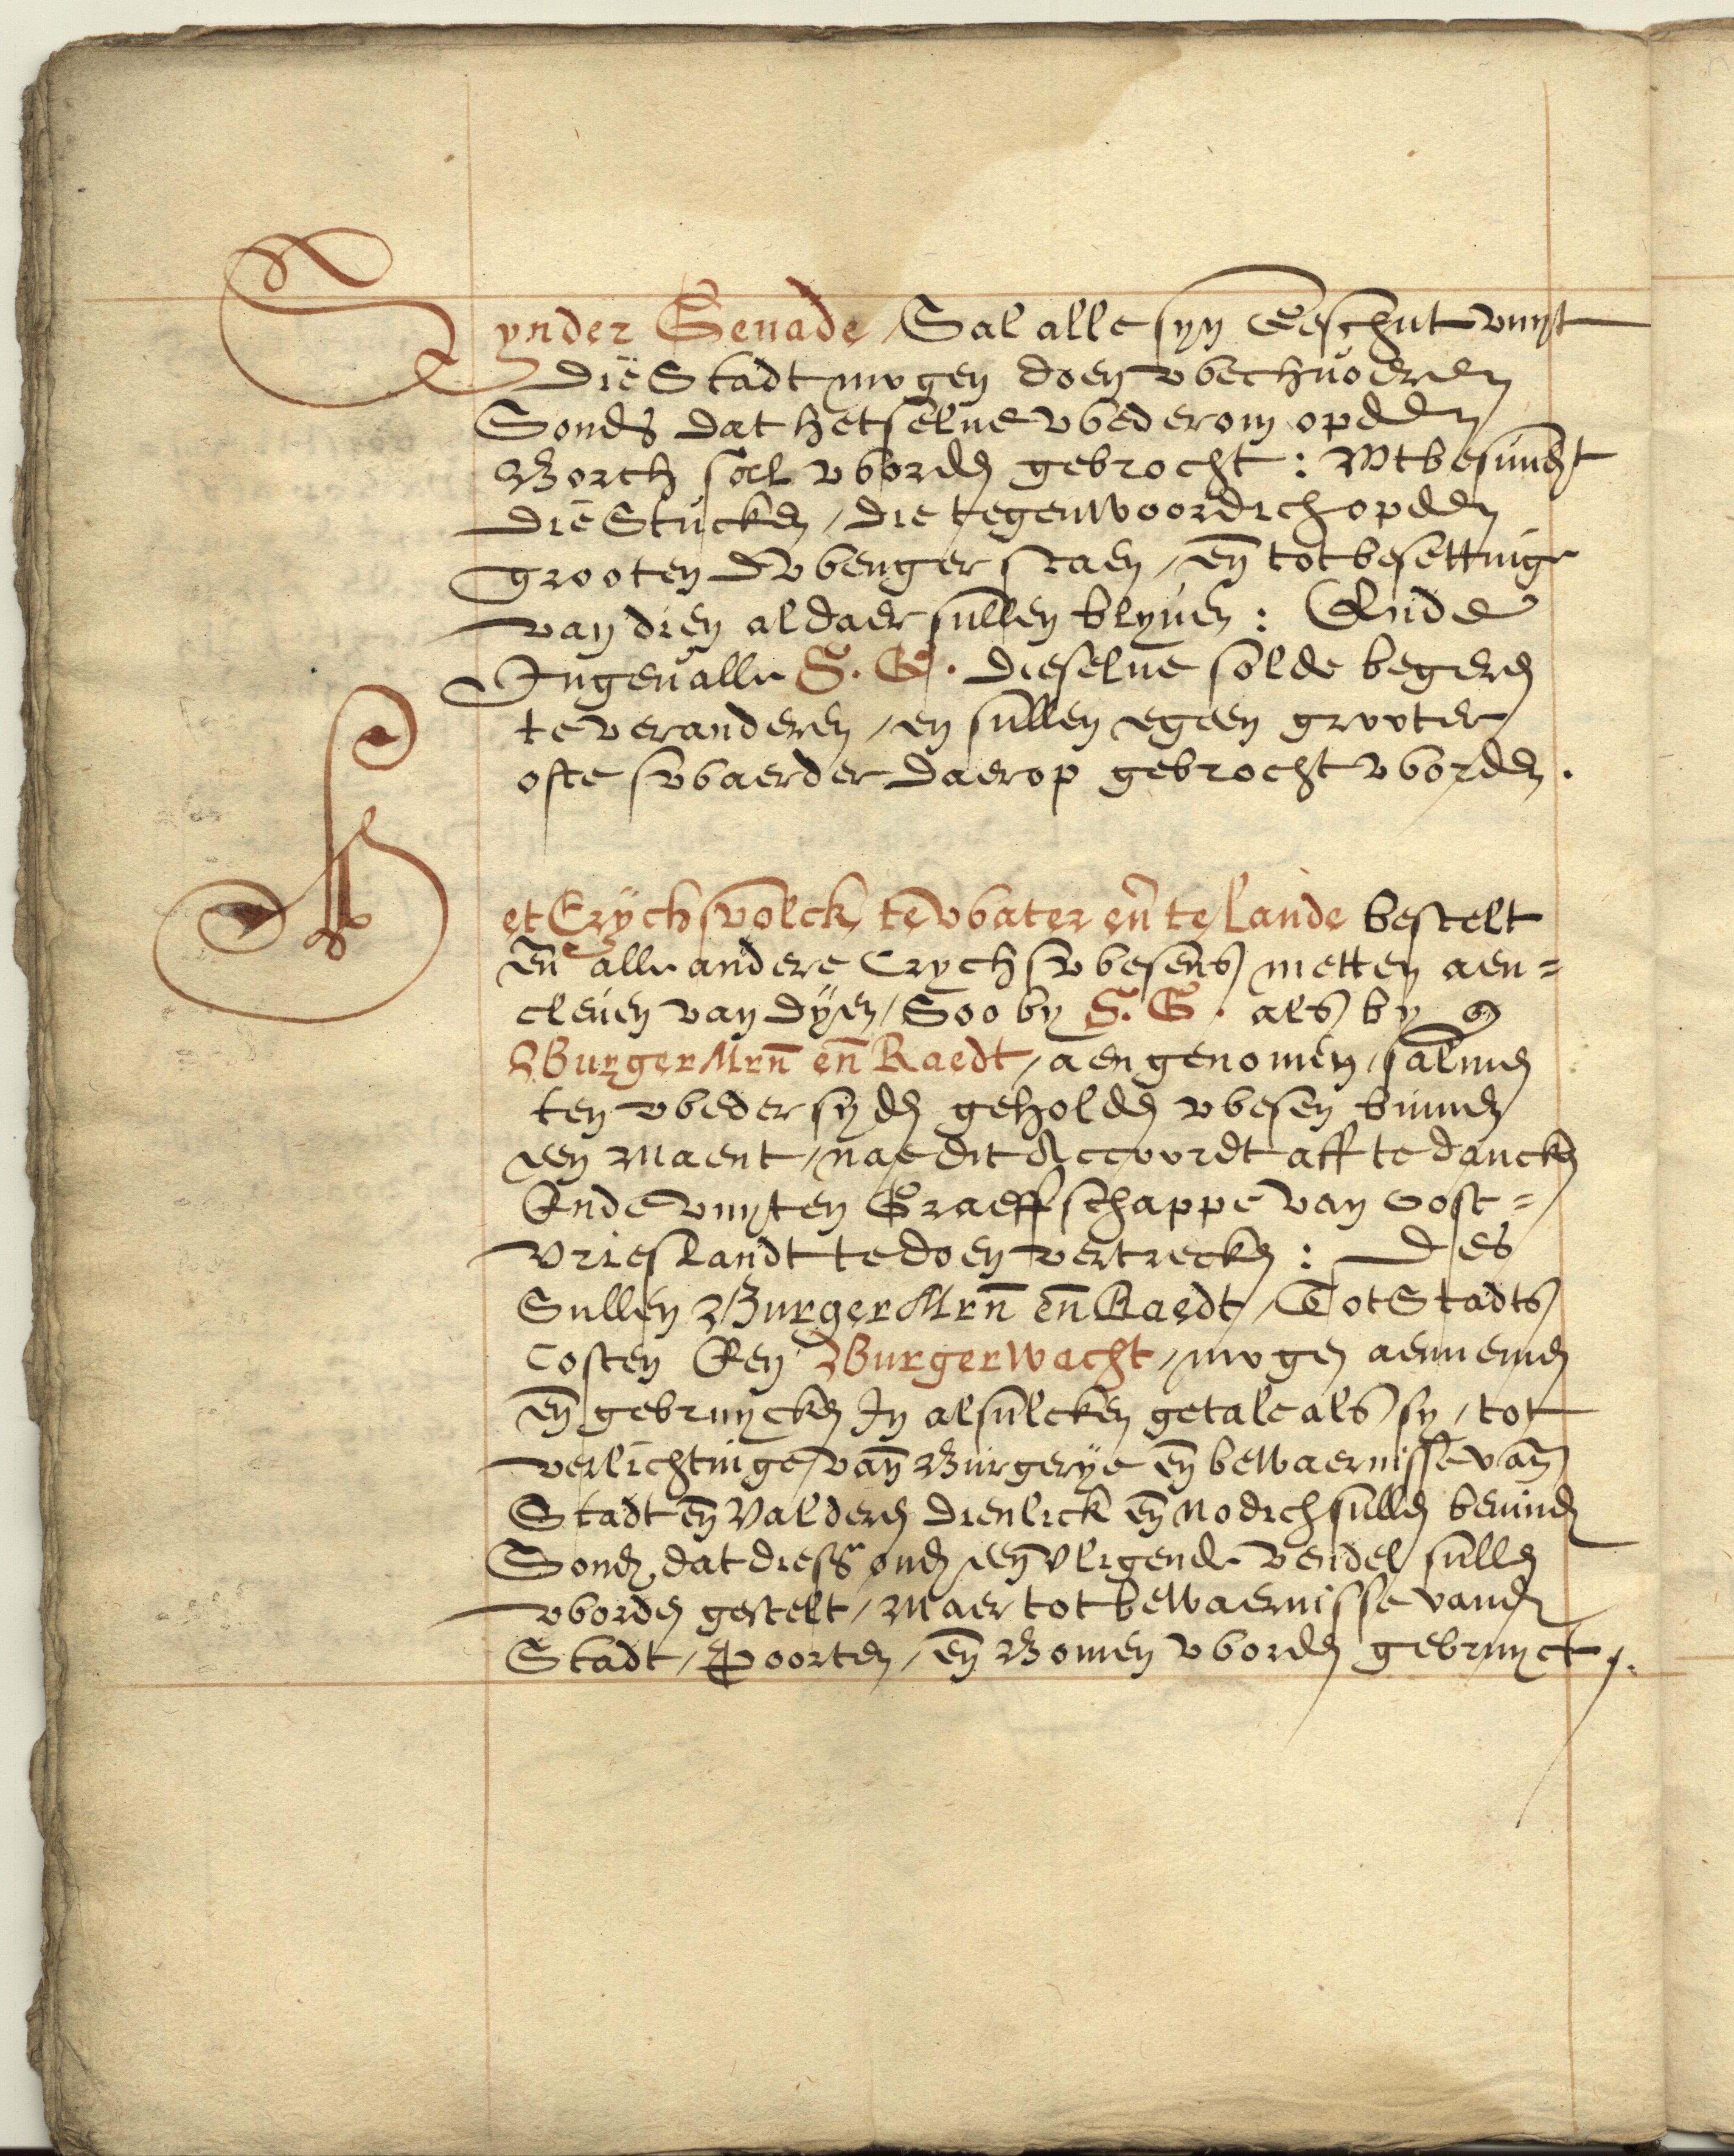 Synder Genade / Sal alle syn Geschut vuyt
die Stadt mogen doen wechuoeren
Sonder dat hetselue wederom opden
Borch sal worden gebrocht: Wtbesundert
die Stucken / die tegenwoordich opden
grooten Dwenger staen / en̄ tot besettinge
van dien aldaer sullen blyuen: Ende
Ingeualle S. G. dieselue solde begeren
te veranderen / en sullen egeen grooter
ofte swaerder daerop gebrocht worden.
Het Crychsvolck te water en̄ te Lande bestelt
en̄ alle andere Crychswesens metten aen=
cleuen van dyen / Soo by S. G. als by
BurgerMrn̄ en̄ Raedt / aengenomen / salmen
ten weder syden geholden wesen binnen
een Maent / nae dit Accoordt aff te dancken
Ende vuyten Graeffschappe van oost=
vrieslandt te doen vertrecken: Des
Sullen BurgerMrn̄ en̄ Raedt / Tot Stadts
Costen Een BurgerWacht / mogen aennemen
en̄ gebruycken In alsulcken getale als sy / tot
verlichtinge van̄ Burgerye en̄ bewaernisse van̄
Stadt en̄ Valderen dienlick en̄ nodich sullen beuinden
Sonder dat diesse onder een vligende Vendel sullen
worden gestelt / Maer tot bewaernisse vander
Stadt / Poorten / en̄ Bomen worden gebruyct /.